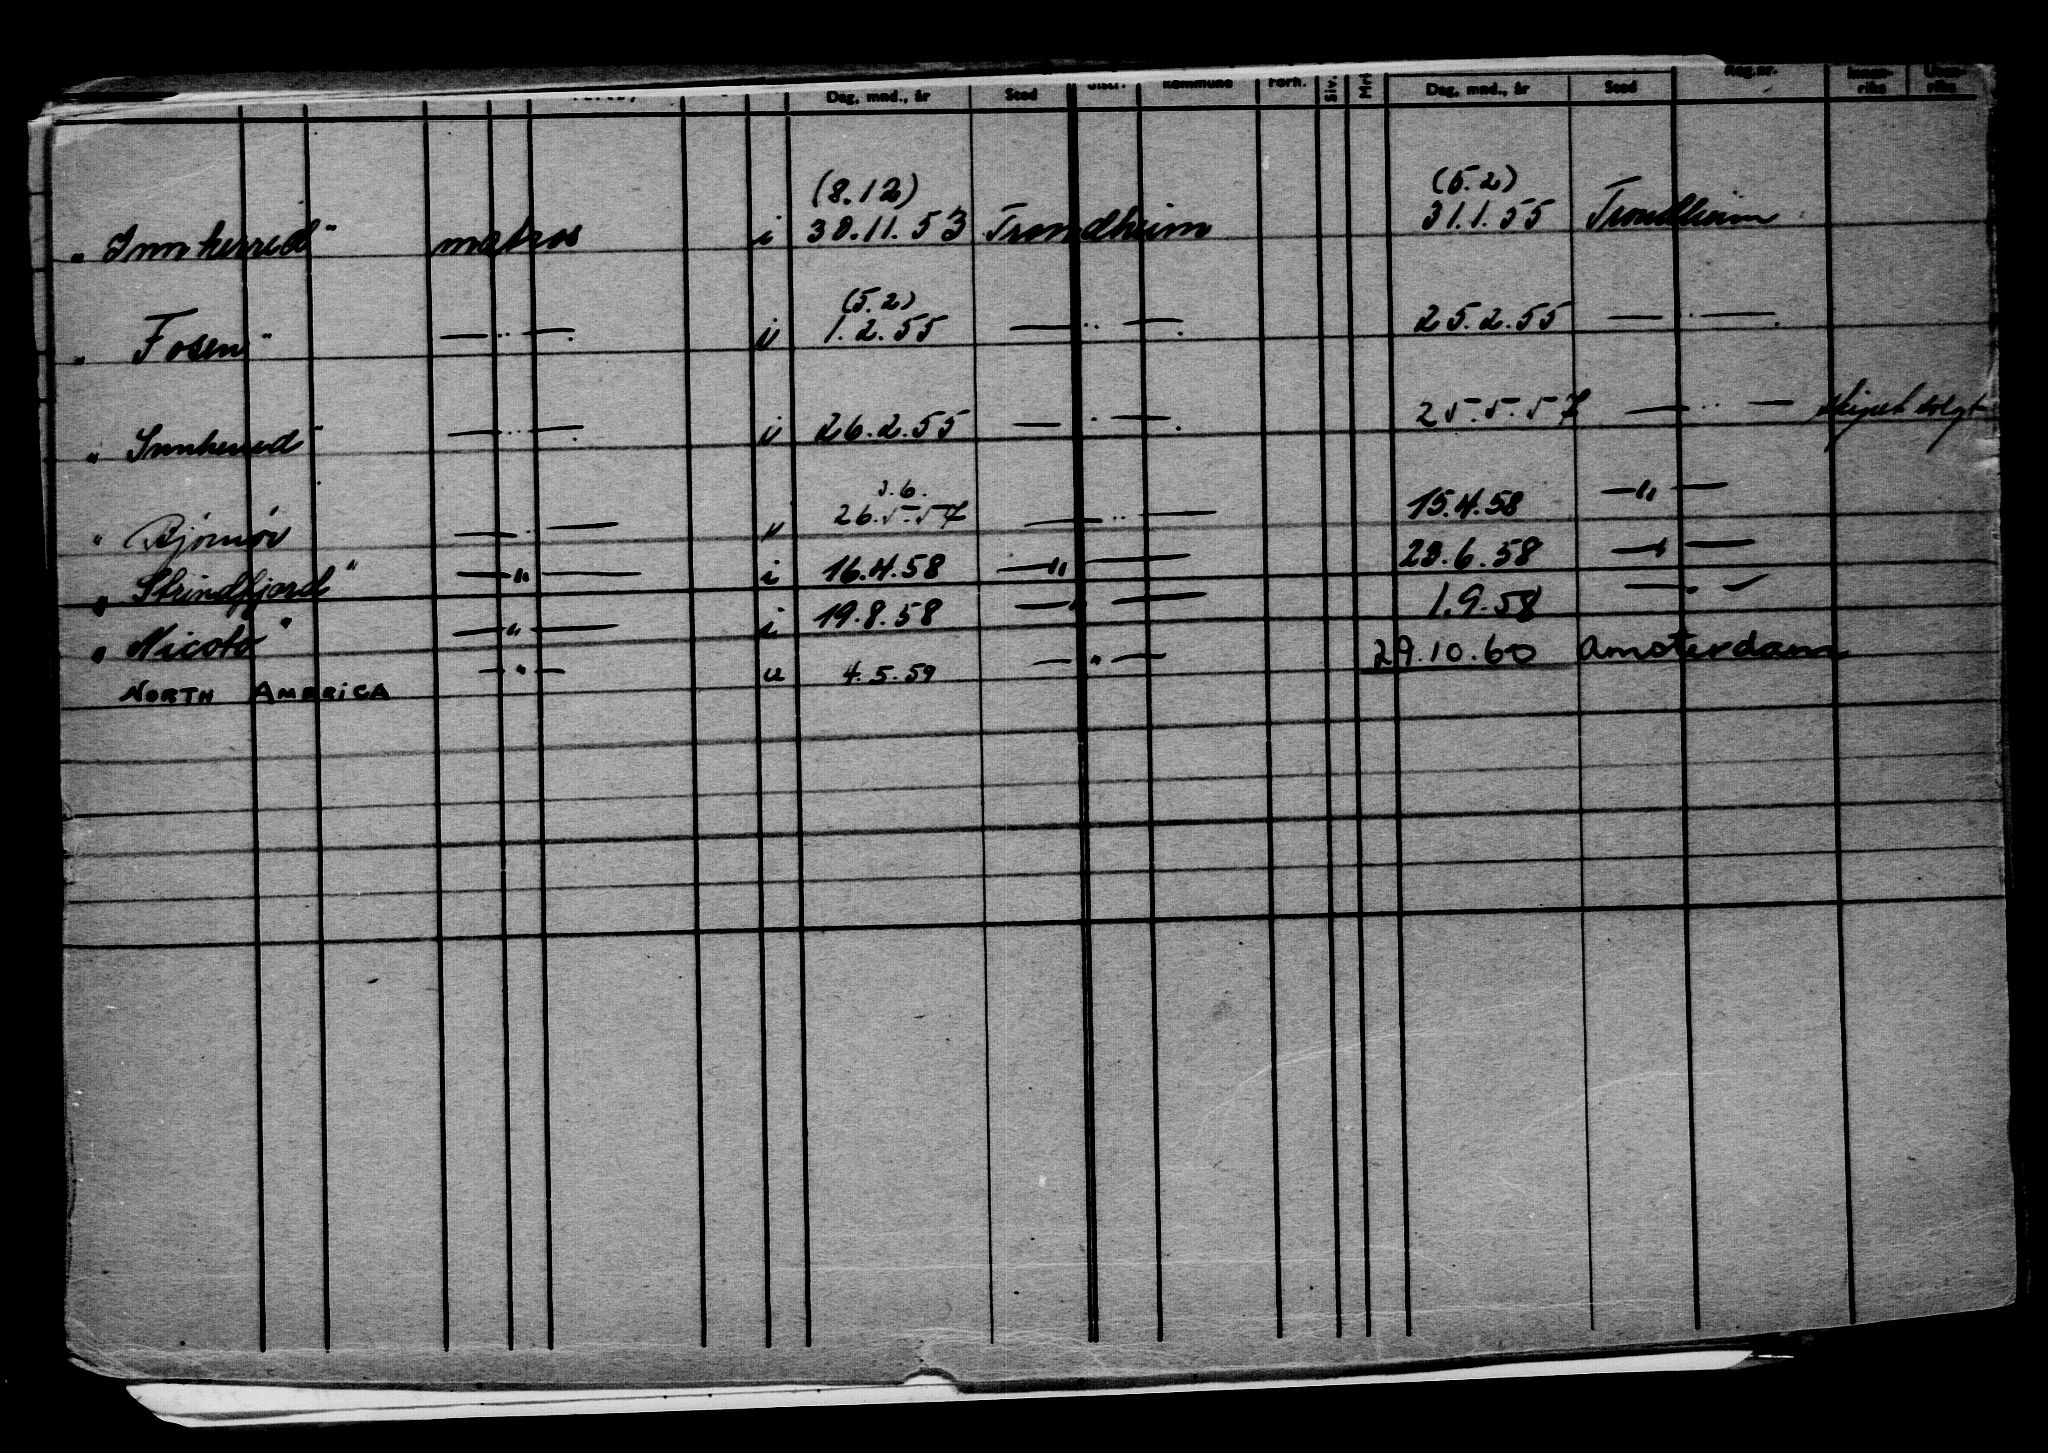 Dag, mnd., år Sted Distr. Kommune Forh. Siv. Dag, mnd., år Sted Reg.nr. Innen- riks Uten- riks
(8.12) (5.2)
„ Innherred" matros i 30.11.53 Trondheim 31.1.55 Trondheim
(5.2)
„ Fosen" — „ — i 1.2.55 — „ — 25.2.55 — „ —
„ Innherred" — „ — i 26.2.55 — „ — 25.5.57 — „ — skipet solgt
3.6.
„ Bjørnør — „ — 26.5.57 — „ — 15.4.58 — „ —
„ Strindfjord" — „ — i 16.4.58 — „ — 23.6.58 — „ —
„ Nicoto" — „ — i 19.8.58 — „ — 1.9.58 — „ —
NORTH AMERICA — " — u 4.5.59 — " — 29.10.60 Amsterdam